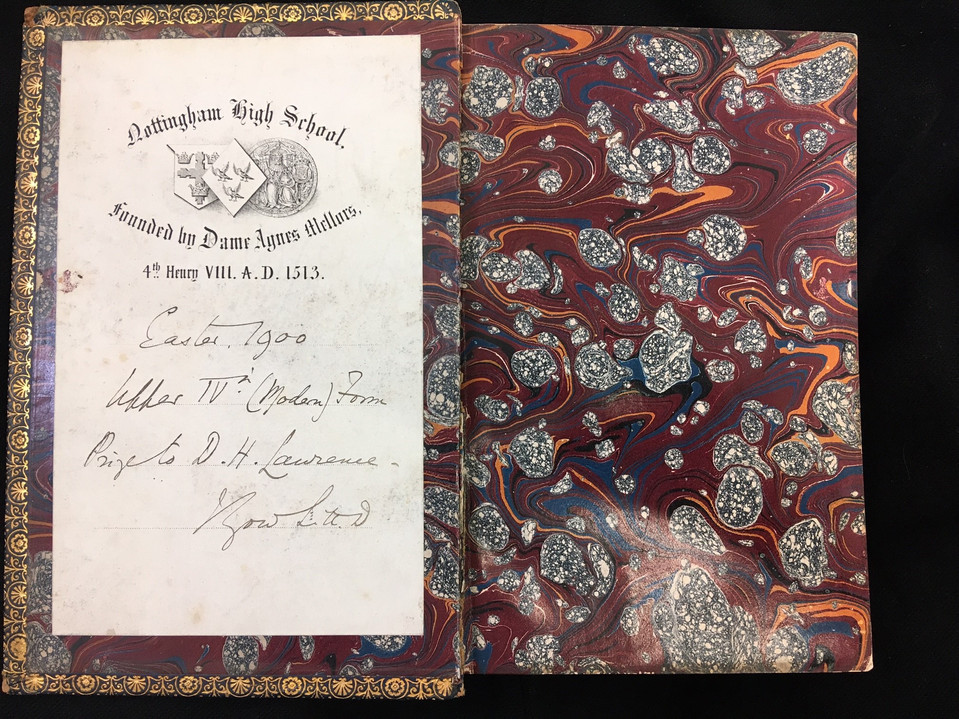 Nottingham High School.
Founded by Dame Agnes Mellors,
4th Henry VIII. A.D. 1513.
Easter, 1900
Upper IVth (Modern) Form
Prize to D. H. Lawrence.
Gow Litt. D